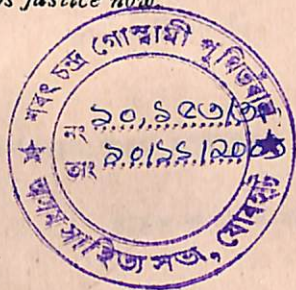 s justice now.
শৰৎ চন্দ্ৰ গোস্বামী পুথিভঁৰাল
নং ২০,১৫৩
তাং ২০/১১/২০০
অসম সাহিত্য সভা, যোৰহাট